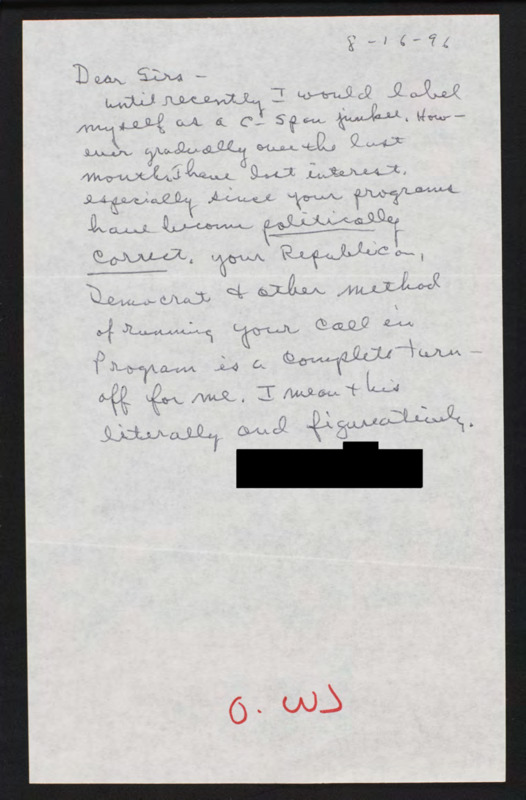 8-16-96
Dear Sirs -
until recently I would label
myself as a C-Span junkee. How-
ever gradually over the last
months I have lost interest.
especially since your programs
have become politically
correct. your Republican,
Democrat & other method
of running your call in
Program is a complete turn-
off for me. I mean this
literally and figureatively.
O. WJ